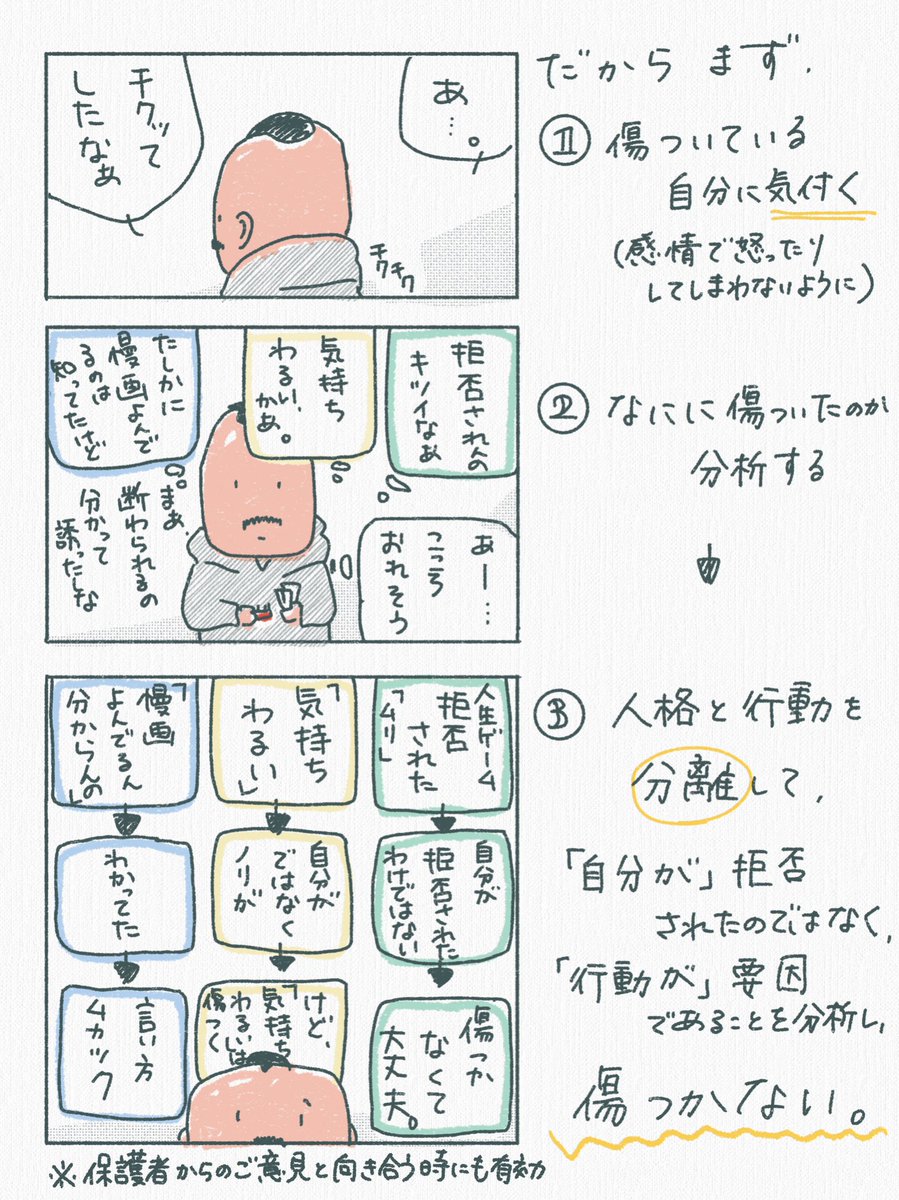 だから まず、
① 傷ついている
自分に気付く
(感情で怒ったり
してしまわないように)
あ…。
チクッて
したなぁ
チクチク
② なにに傷ついたのか
分析する
拒否されんの
キツイなぁ
気持ち
わるい、
かぁ。
たしかに
漫画よんで
るのは
知ってたけど
まぁ、
断わられるの
分かって
誘ったしな
あー…
こころ
おれそう
③ 人格と行動を
分離して、
「自分が」拒否
されたのではなく、
「行動が」要因
であることを分析し、
傷つかない。
人生ゲーム
拒否
された
「ムリ」
自分が
拒否された
わけではない
傷つか
なくて
大丈夫。
「気持ち
わるい」
自分が
ではなく
ノリが
けど、
「気持ち
わるい」は
傷つく
「漫画
よんでるん
分からんの」
わかってた
言い方
ムカツク
※保護者からのご意見と向き合う時にも有効